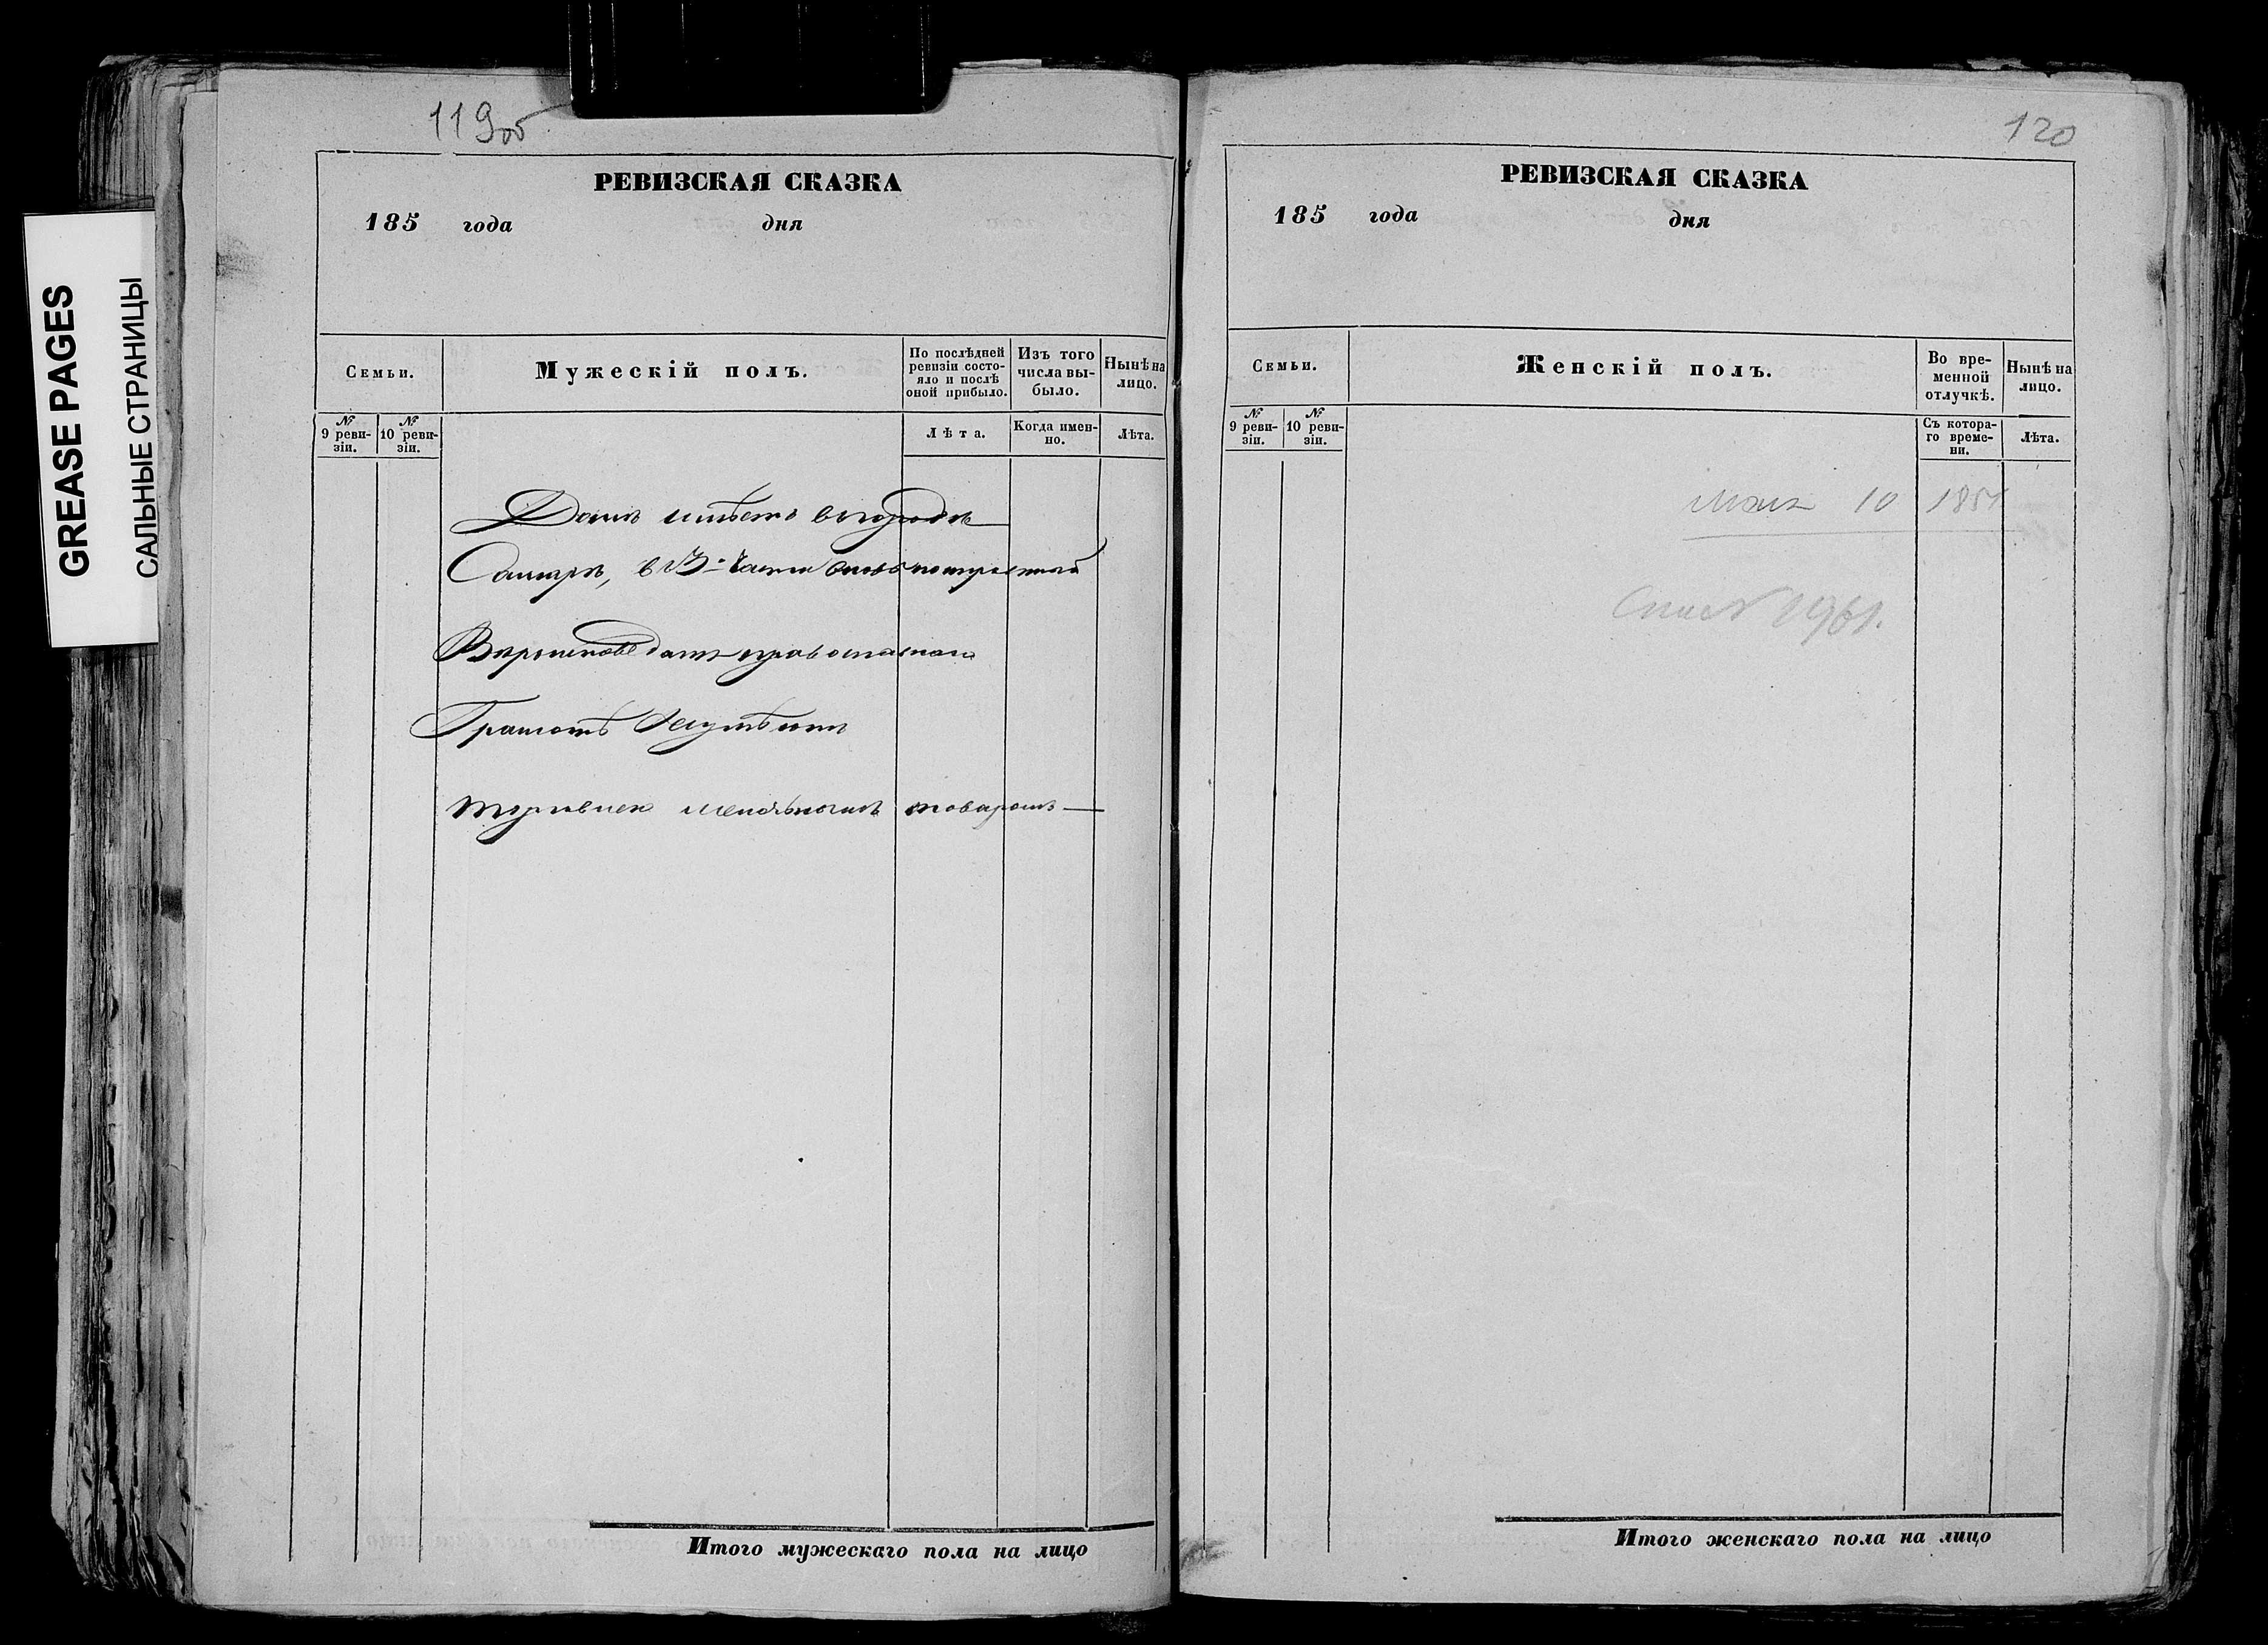 GREASE PAGES
САЛЬНЫЕ СТРАНИЦЫ
119об
РЕВИЗСКАЯ СКАЗКА
185 года дня
Семьи.
Мужескій полъ.
По послѣдней ревизіи состояло и послѣ оной прибыло.
Изъ того числа выбыло.
Нынѣ на лицо.
№ 9 ревизіи.
№ 10 ревизіи.
Лѣта.
Когда именно.
Лѣта.
Домъ имѣетъ въ городѣ
Самарѣ, въ 3й части вновь построенной
Вѣроисповѣданія православнаго
Грамотѣ неумѣетъ
торговлей мелочнымъ товаромъ
Итого мужескаго пола на лицо
120
РЕВИЗСКАЯ СКАЗКА
185 года дня
Семьи.
Женскій полъ.
Во временной отлучкѣ.
Нынѣ на лицо.
№ 9 ревизіи.
№ 10 ревизіи.
Съ котораго времени.
Лѣта.
10 185
Итого женскаго пола на лицо